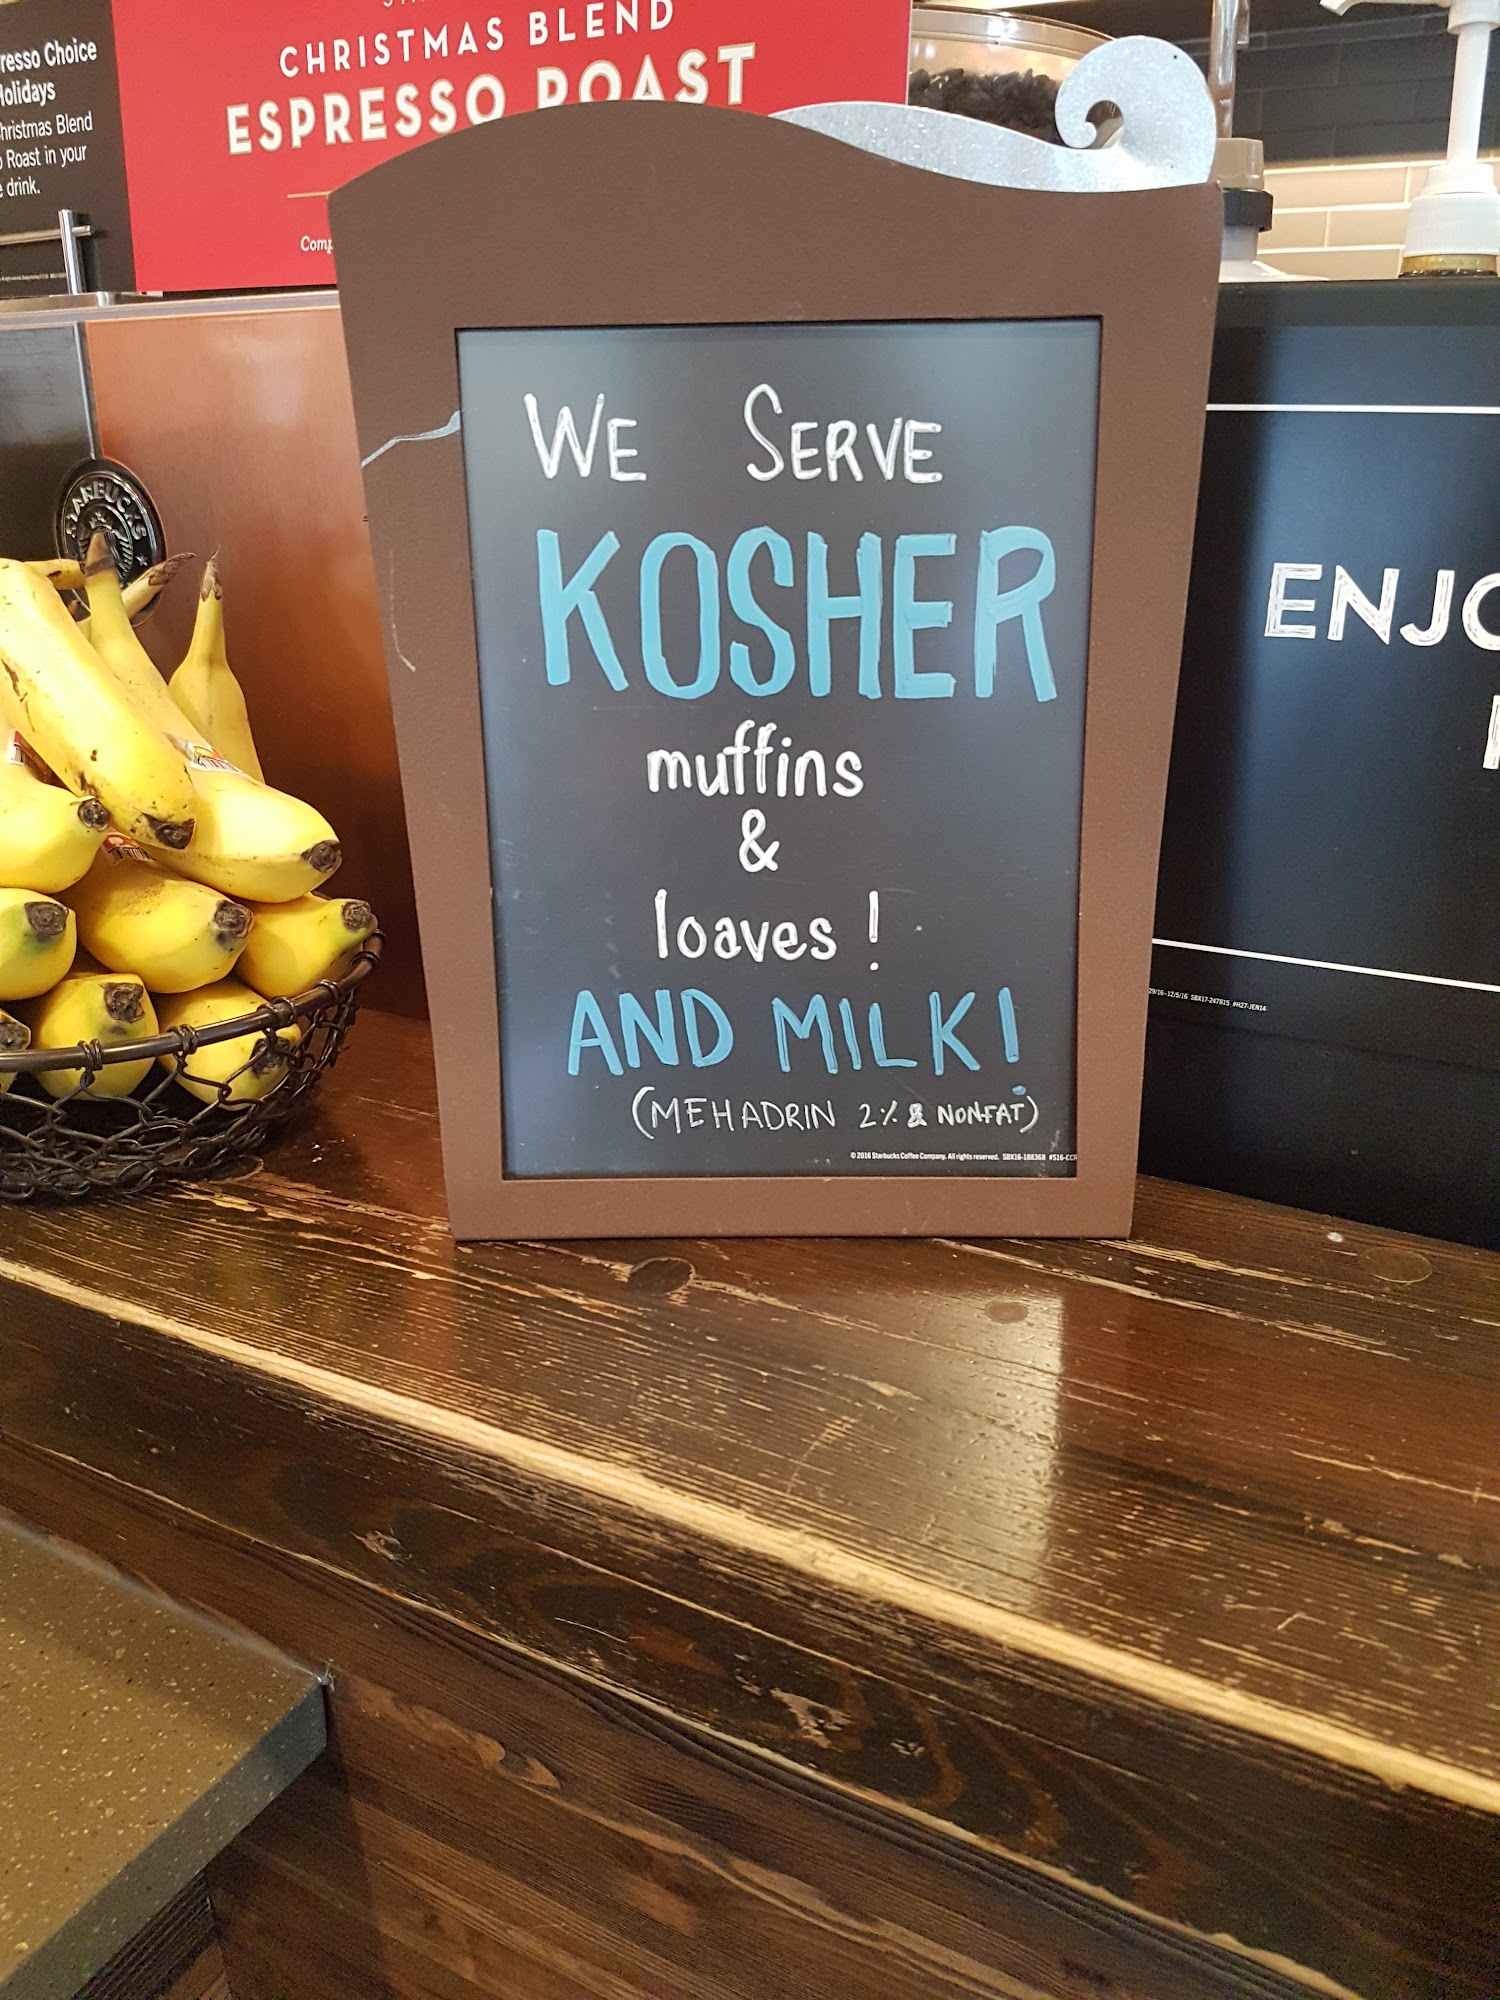 resso Choice
Holidays
Christmas Blend
Roast in your
drink.
CHRISTMAS BLEND
ESPRESSO ROAST
STARBUCKS
WE SERVE
KOSHER
muffins
&
loaves !
AND MILK!
(MEHADRIN 2% & NONFAT)
© 2016 Starbucks Coffee Company. All rights reserved. SBX16-188368 #S16-CCR
ENJO
29/16-12/5/16 SBX17-247815 #H27-JEN14